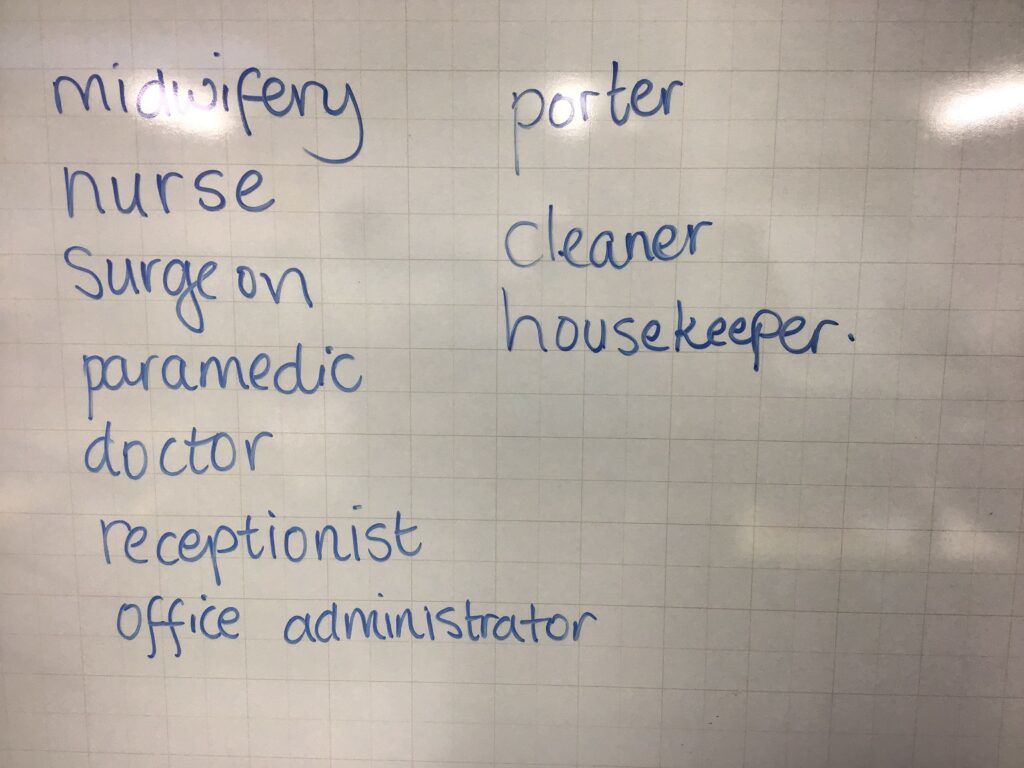 midwifery
nurse
Surgeon
paramedic
doctor
receptionist
office administrator
porter
cleaner
housekeeper.